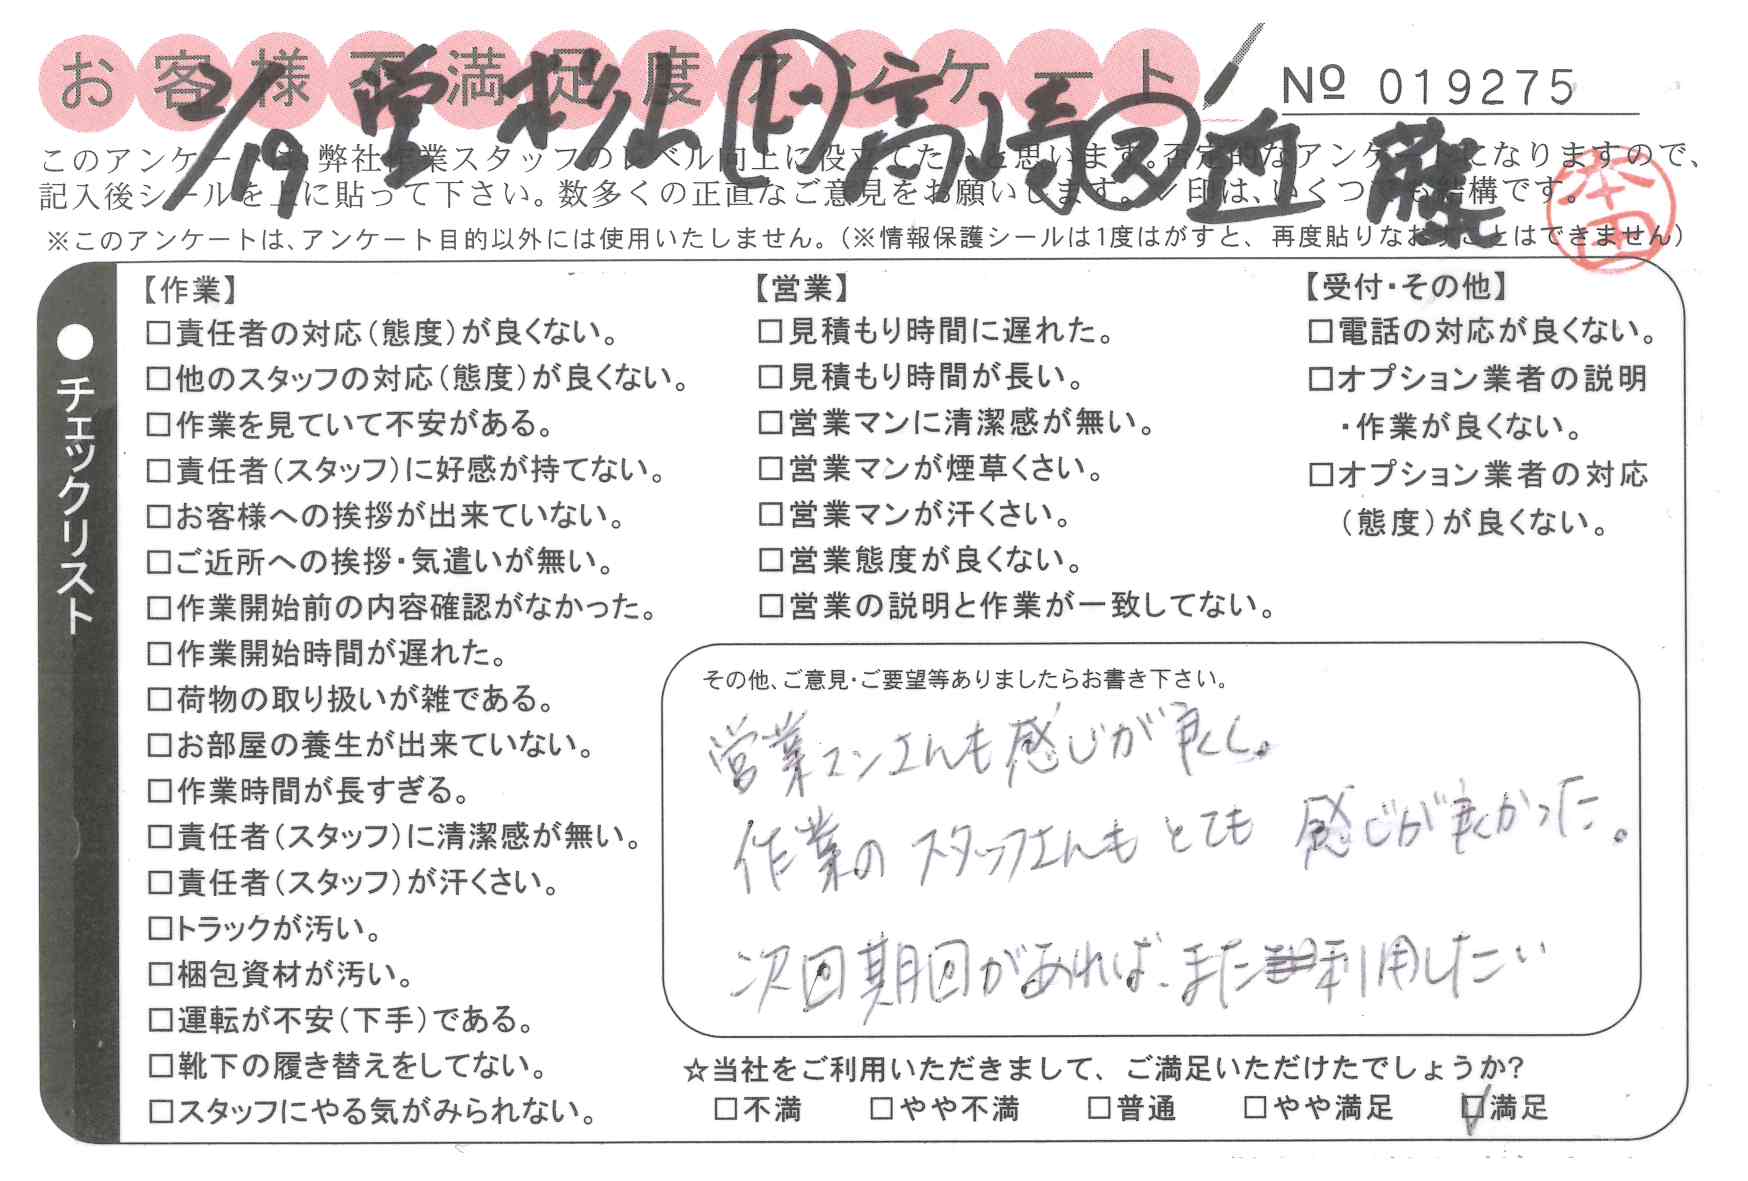 お客様不満足度アンケート
№ 019275
2/19 営 杉山 ト 高崎 ス 近藤
このアンケートは、弊社作業スタッフのレベル向上に役立てたいと思います。否定的なアンケートになりますので、
記入後シールを上に貼って下さい。数多くの正直なご意見をお願いします。✓印は、いくつでも結構です。
本田
※このアンケートは、アンケート目的以外には使用いたしません。（※情報保護シールは1度はがすと、再度貼りなおすことはできません）
●チェックリスト
【作業】
□責任者の対応（態度）が良くない。
□他のスタッフの対応（態度）が良くない。
□作業を見ていて不安がある。
□責任者（スタッフ）に好感が持てない。
□お客様への挨拶が出来ていない。
□ご近所への挨拶・気遣いが無い。
□作業開始前の内容確認がなかった。
□作業開始時間が遅れた。
□荷物の取り扱いが雑である。
□お部屋の養生が出来ていない。
□作業時間が長すぎる。
□責任者（スタッフ）に清潔感が無い。
□責任者（スタッフ）が汗くさい。
□トラックが汚い。
□梱包資材が汚い。
□運転が不安（下手）である。
□靴下の履き替えをしてない。
□スタッフにやる気がみられない。
【営業】
□見積もり時間に遅れた。
□見積もり時間が長い。
□営業マンに清潔感が無い。
□営業マンが煙草くさい。
□営業マンが汗くさい。
□営業態度が良くない。
□営業の説明と作業が一致してない。
【受付・その他】
□電話の対応が良くない。
□オプション業者の説明
・作業が良くない。
□オプション業者の対応
（態度）が良くない。
その他、ご意見・ご要望等ありましたらお書き下さい。
営業マンさんも感じが良くし。
作業のスタッフさんもとても感じが良かった。
次回期回があれば、また利用したい
☆当社をご利用いただきまして、ご満足いただけたでしょうか?
□不満 □やや不満 □普通 □やや満足 ☑満足